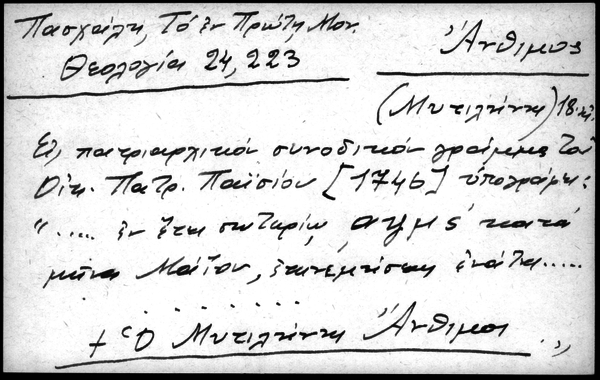 Πασχάλη, Τό ἐν Πρώτῃ Μον.
Θεολογία 24, 223
Ἄνθιμος
(Μυτιλήνης) 18 αἰ.
Εἰς πατριαρχικόν συνοδικόν γράμμα τοῦ
Οἰκ. Πατρ. Παϊσίου [1746] ὑπογράφει:
"..... ἐν ἔτει σωτηρίῳ, αψμς΄ κατά
μῆνα Μάϊον, ἐπινεμήσεως ἐνάτης.....
. . . . . . . .
+ Ὁ Μυτιλήνης Ἄνθιμος ..,,